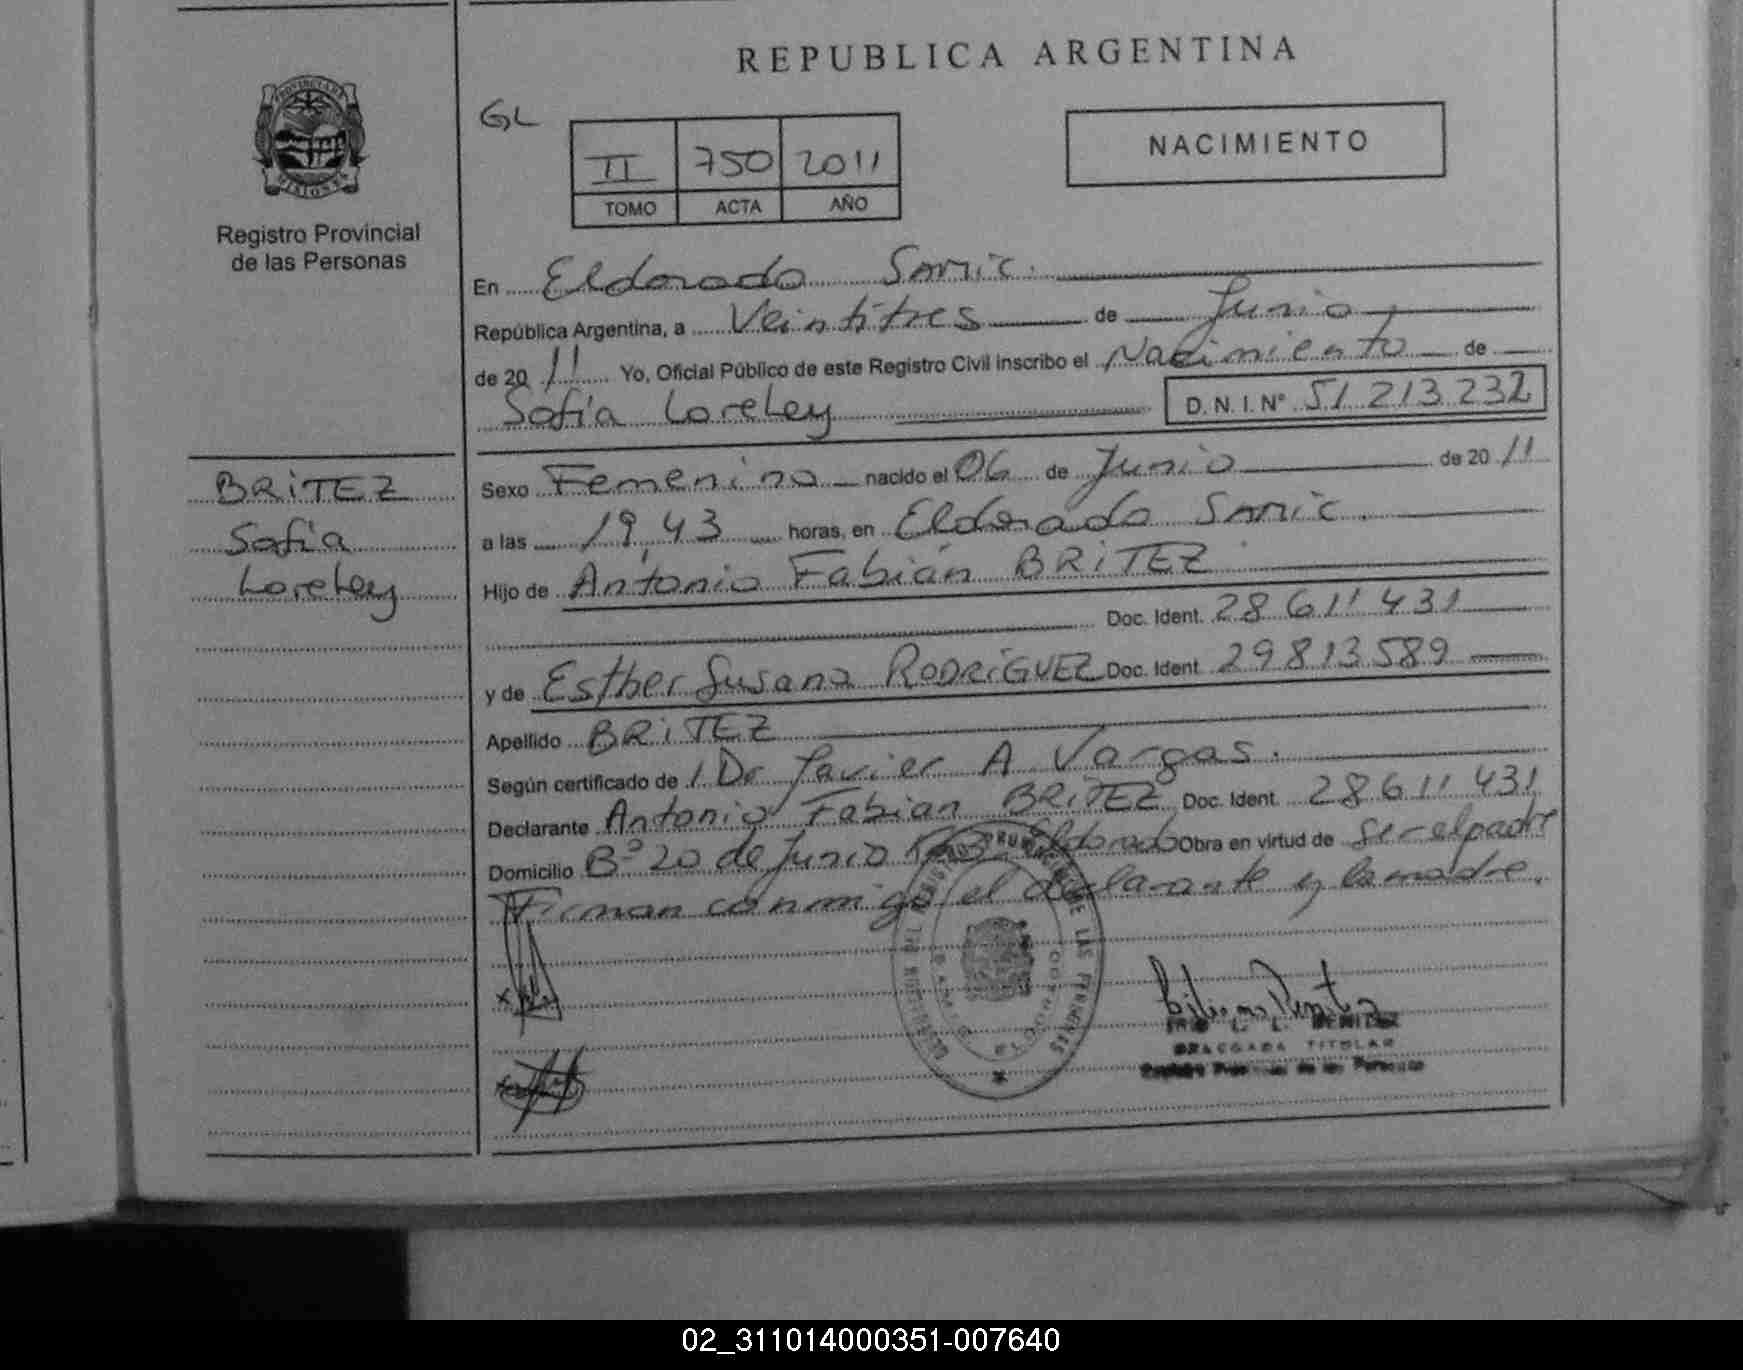 REPUBLICA ARGENTINA
PROVINCIA DE MISIONES
Registro Provincial
de las Personas
GL
II 750 2011
TOMO ACTA AÑO
NACIMIENTO
En Eldorado
República Argentina, a Veintitres de Junio
de 20 11 Yo, Oficial Público de este Registro Civil inscribo el Nacimiento de
Sofía Loreley D.N.I.Nº 51 213 232
BRITEZ
Sofía
Loreley
Sexo Femenino nacido el 06 de Junio de 20 11
a las 19,43 horas, en Eldorado
Hijo de Antonio Fabián BRITEZ
Doc. Ident. 28 611 431
y de Esther Susana RODRIGUEZ Doc. Ident. 29 813 589
Apellido BRITEZ
Según certificado de Dr Javier A Vargas.
Declarante Antonio Fabian BRITEZ Doc. Ident. 28 611 431
Domicilio Bº 20 de Junio Eldorado Obra en virtud de ser el padre
Firman conmigo el declarante y la madre.
DE LAS PERSONAS
BENITEZ
DELEGADA TITULAR
Registro Provincial de las Personas
02_311014000351-007640